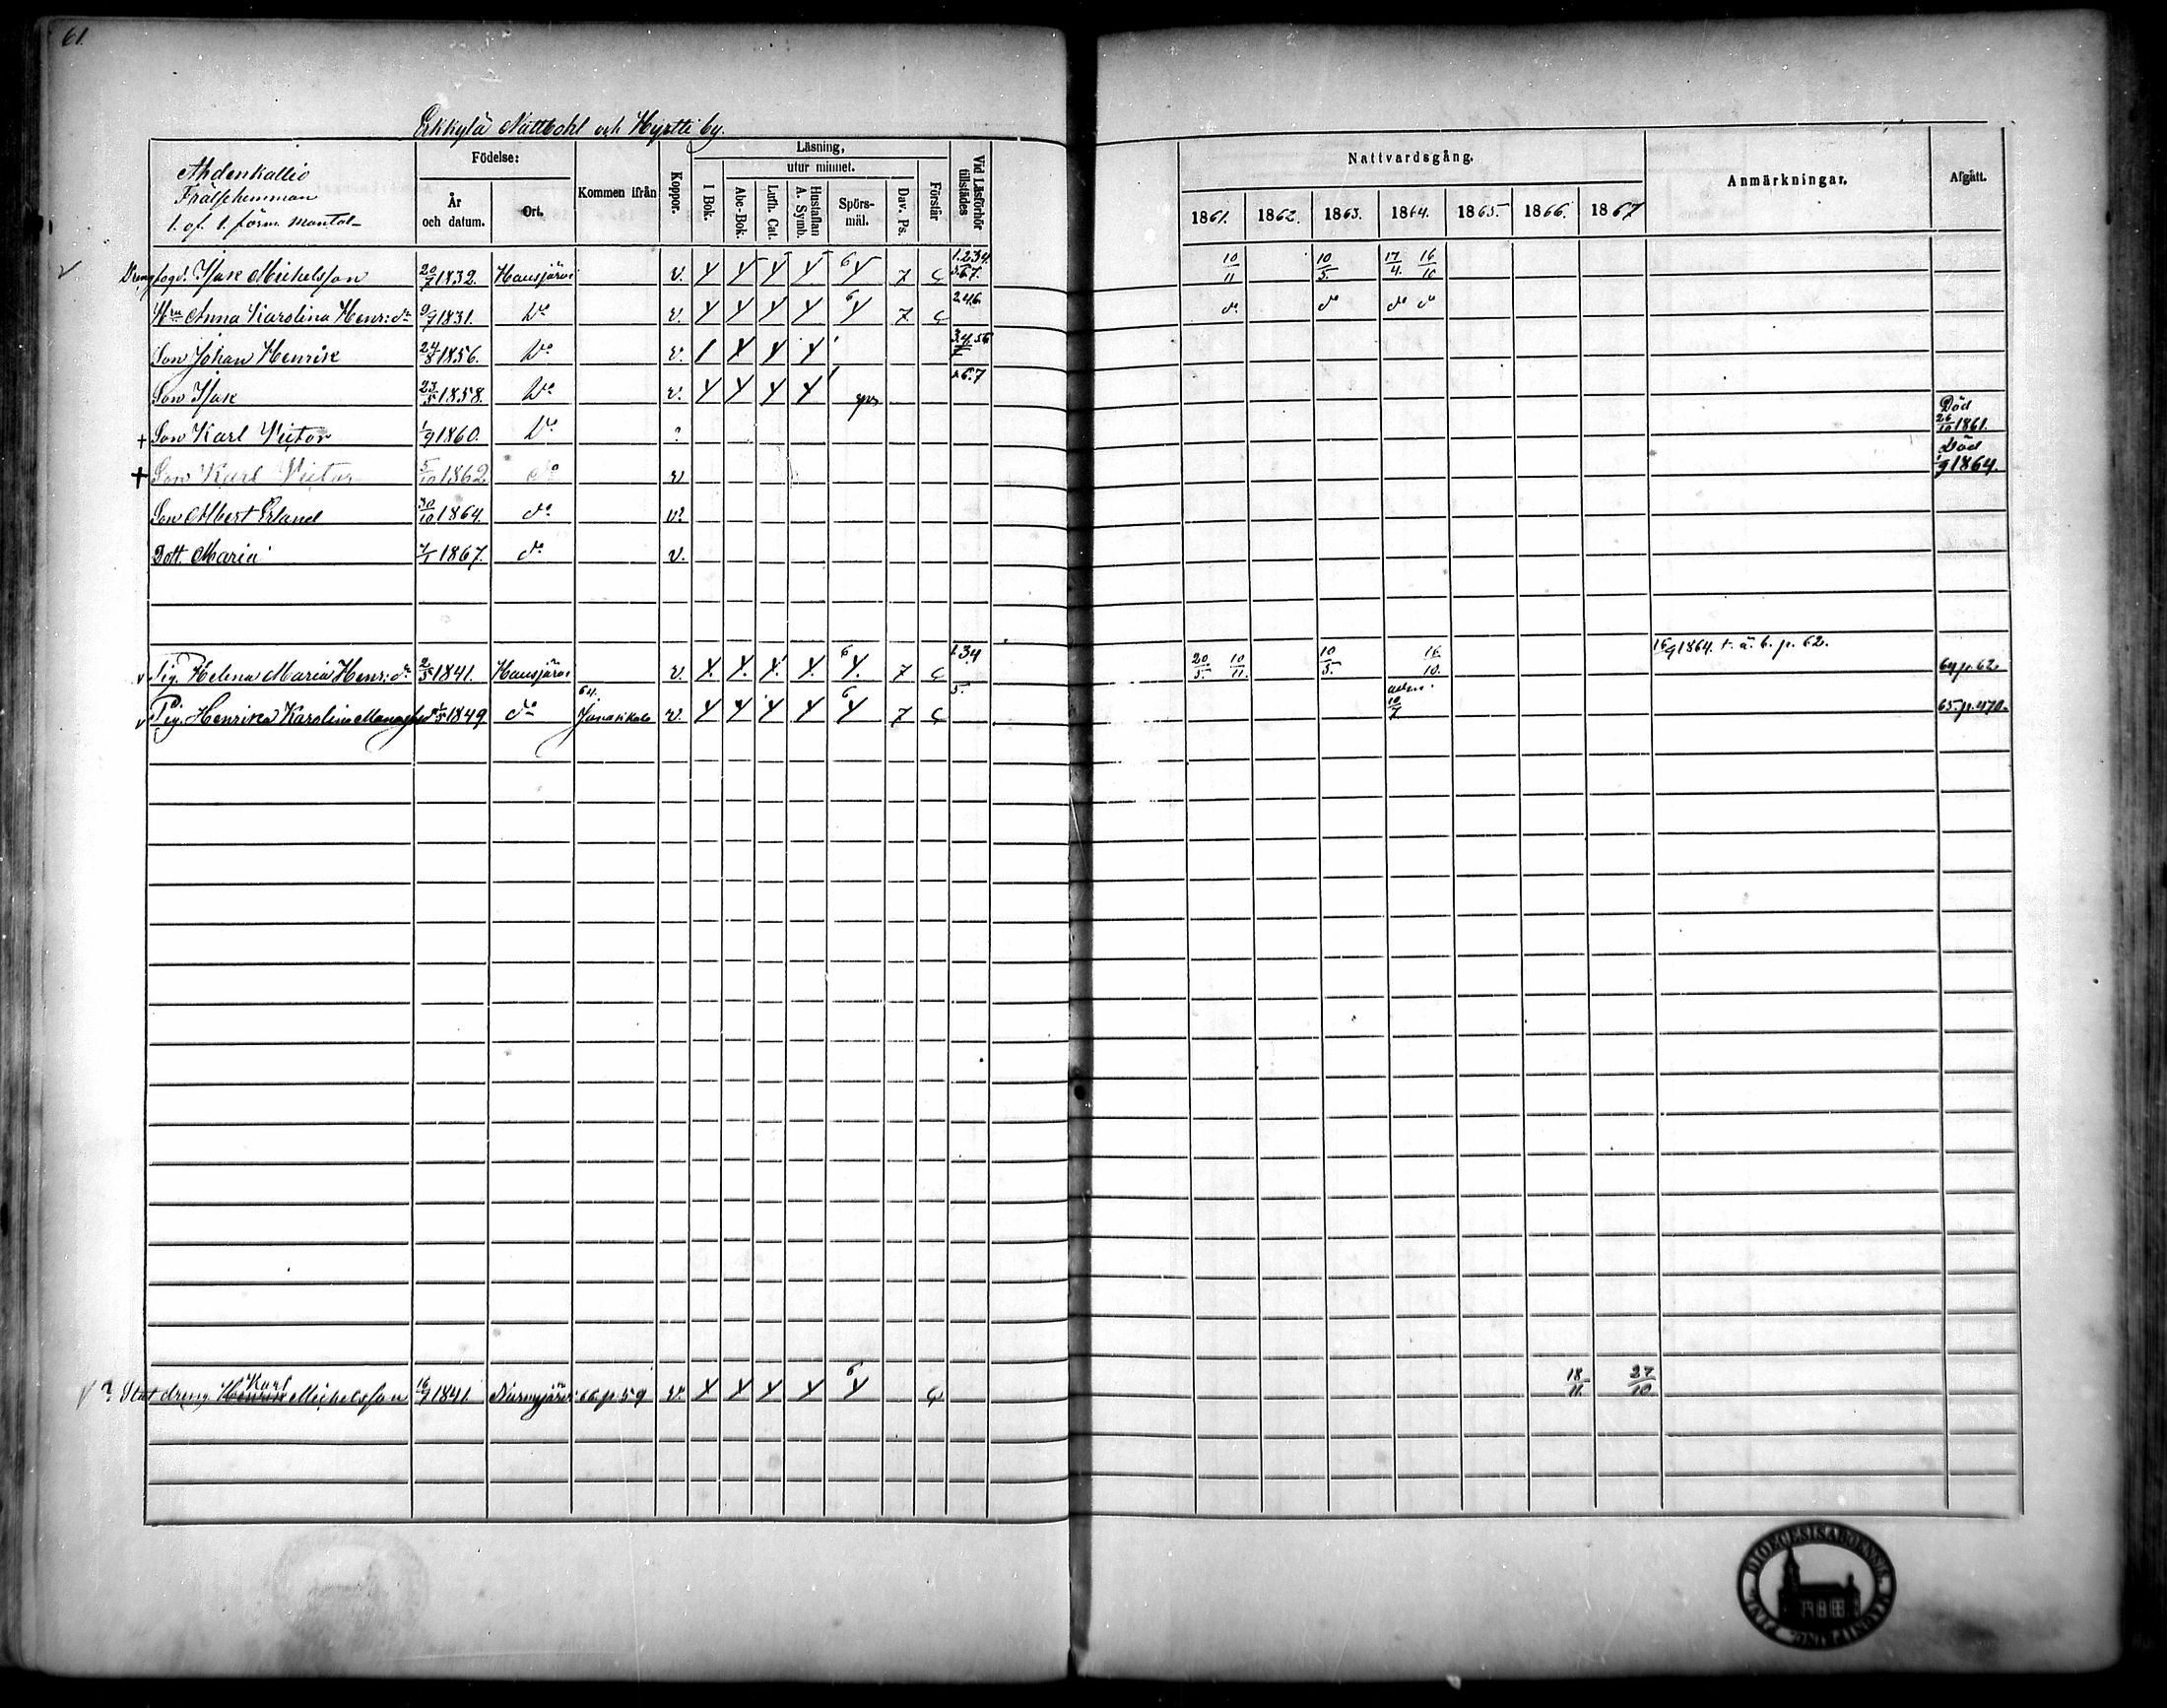 61.
Erkkylä Nattbohl och Hyrtti by.
Ahdenkallio
Frälsehemman
1. of 1. förm. mantal
Födelse:
År och datum.
Ort.
Kommen ifrån
Koppor.
Läsning,
utur minnet.
I Bok.
Abc-Bok.
Luth. Cat.
Hustaflan A. Symb.
Spörsmål.
Dav. Ps.
Förstår
Vid Läsförhör tillstädes
Nattvardsgång.
1861. 1862. 1863. 1864. 1865. 1866. 1867
Anmärkningar.
Afgått.
Drengfogd. Isak Michelsson 20/7 1832. Hausjärvi v. 7 1.2.3.4. 5.6.7. 10/11 10/5. 17/4. 16/10
Hru Anna Karolina Henr:dr 9/7 1831. Do v. 7 2.4.6 do do do do
Son Johan Henrik 24/8 1856. Do v.
Son Isak 23/5 1858. Do v. 5.6.7
+ Son Karl Victor 1/9 1860. Do ? Död 26/10 1861.
+ Son Karl Victor 5/10 1862. do v Död 1/9 1864.
Son Albert Erland 30/10 1864. do v.
Dott. Maria 1867. do v.
v Pig. Helena Maria Henr:dr 2/5 1841. Hausjärvi v. 6 7 1.3.4 20/5. 10/11. 10/5. 16/10. 16/9 1864. t. ä. b. p. 62. 64 p. 62.
v Pig. Henrika Karolina 1849 do 64. Janakkala v. 6 7 5. 10/7 65. p. 470.
v ? Statdreng Karl Michelsson 16/7 1841. Nurmijärvi 66 p 59 v. 6 18/11 27/10
DIOECESIS ABOENSIS